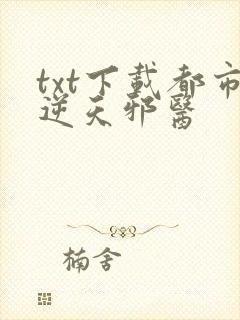 txt下載都市
逆天邪醫
楠舍